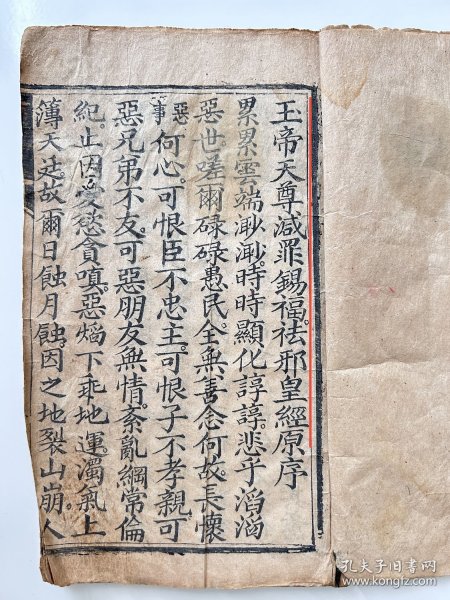 王帝天尊减罪錫福。祛邪皇經原序
累累雲端渺渺。時時顯化諄諄。悲乎滔滔
惡世。嗟爾碌碌愚民。全無善念何故。長懷
惡事何心。可恨臣不忠主。可恨子不孝親。可
惡兄弟不友。可惡朋友無情。紊亂綱常倫
紀。止因愛慾貪嗔。惡焰下乖地運。濁氣上
薄天廷。故爾日蝕月蝕。因之地裂山崩。人
孔夫子旧书网
www.kongfz.com